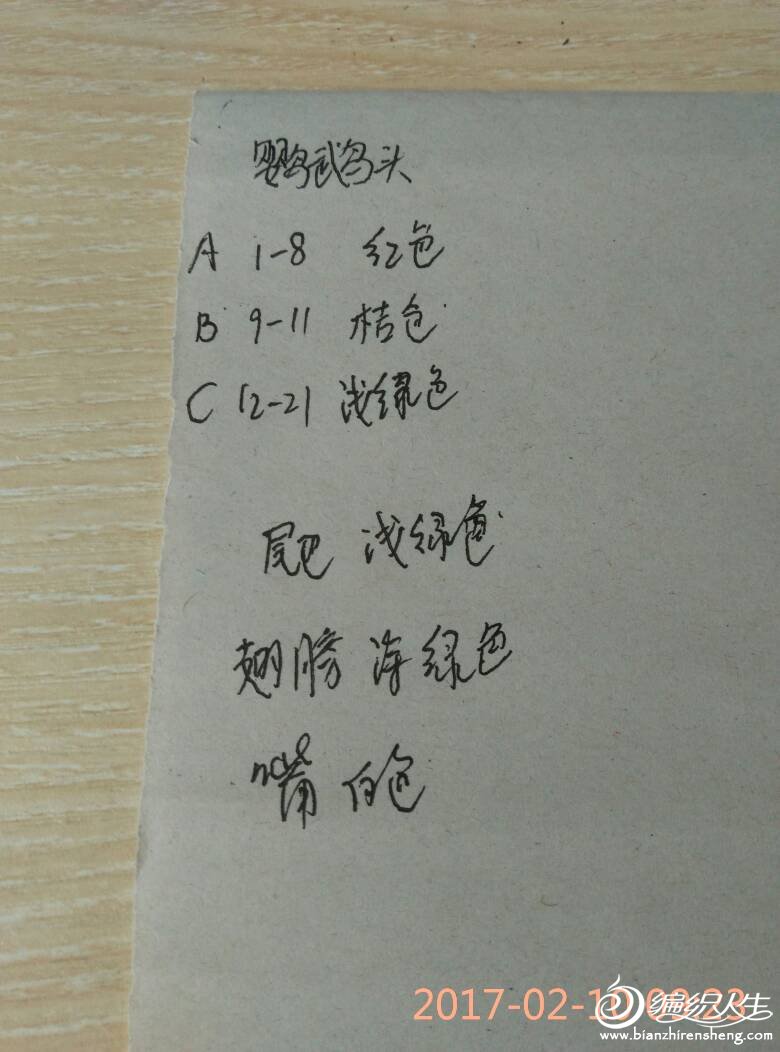 鹦鹉头
A 1-8 红色
B 9-11 桔色
C 12-21 浅绿色
尾巴 浅绿色
翅膀 海绿色
嘴 白色
编织人生
www.bianzhirensheng.com